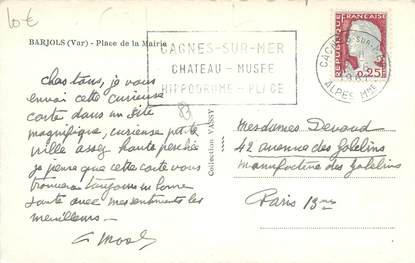 10€
BARJOLS (Var) - Place de la Mairie
CAGNES-SUR-MER
CHATEAU - MUSÉE
HIPPODROME - PLAGE
REPUBLIQUE FRANÇAISE
0,25
CAGNES-SUR-MER
ALPES MMES
vous
envoi cette curieuse
carte dans un site
magnifique, curieuse petite
ville assez haute perchée
je pense que cette carte vous
trouvera toujours en bonne
santé avec mes sentiments les
meilleurs
83
Collection VASSY
Mesdames Devaud
42 avenue des Gobelins
manufacture des Gobelins
Paris 13me